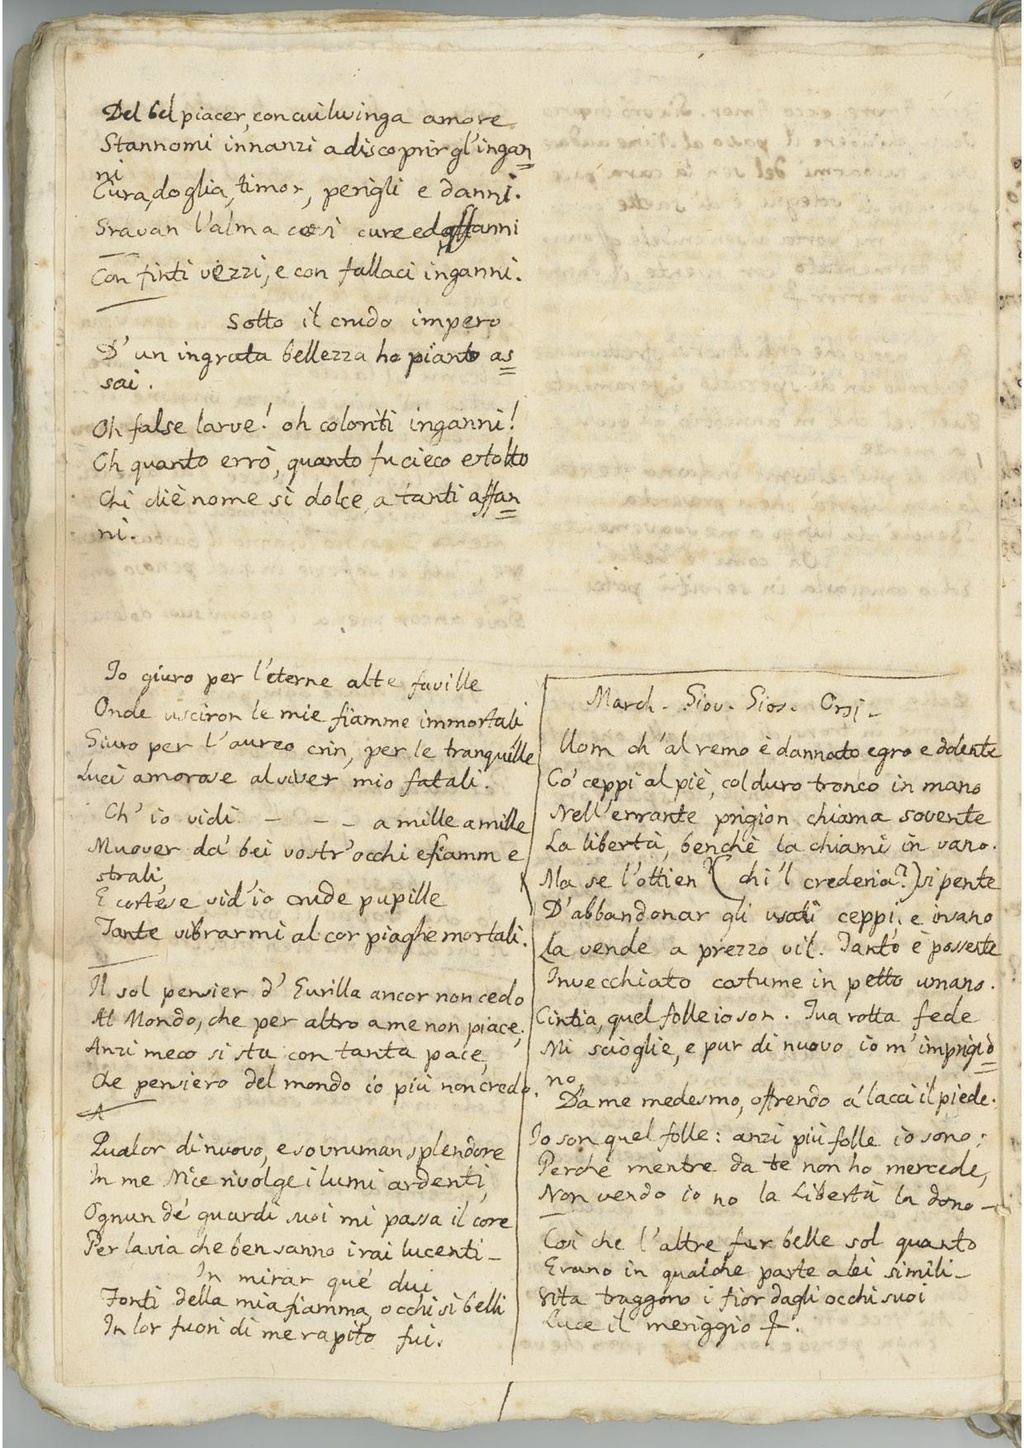 Del bel piacer, con cui lusinga amore
Stannomi innanzi a discoprir gl'ingan
ni
Cura, doglia, timor, perigli e danni.
Sravan l'alma così cure ed affanni
Con finti vezzi, e con fallaci inganni.
Sotto il crudo impero
D'un ingrata bellezza ho pianto as
sai.
Oh false larve! oh coloriti inganni!
Oh quanto errò, quanto fu cieco e stolto
Chi diè nome sì dolce a tanti affan
ni.
Io giuro per l'eterne alte faville
Onde usciron le mie fiamme immortali
Giuro per l'aureo crin, per le tranquille
Luci amorose al viver mio fatali.
Ch'io vidi - - - a mille a mille
Muover da' bei vostr'occhi e fiamme
strali,
E cortese vid'io crude pupille
Tante vibrarmi al cor piaghe mortali.
Il sol pensier d'Eurilla ancor non cedo
Al Mondo, che per altro a me non piace,
Anzi meco si sta con tanta pace,
Che pensiero del mondo io più non credo.
Qualor di nuovo, e sovruman splendore
In me Nice rivolge i lumi ardenti,
Ognun de' guardi suoi mi passa il core
Per la via che ben sanno i rai lucenti -
In mirar que' dui
Fonti della mia fiamma, occhi sì belli
In lor fuori di me rapito fui.
March. Giov. Gios. Orsi -
Uom ch'al remo è dannato egro e dolente
Co' ceppi al piè, col duro tronco in mano
Nell'errante prigion chiama sovente
La libertà, benchè la chiami in vano.
Ma se l'ottien (chi'l crederia?) si pente
D'abbandonar gli usati ceppi, e insano
La vende a prezzo vil. Tanto è possente
Invecchiato costume in petto umano.
Cintia, quel folle io son. Tua rotta fede
Mi scioglie, e pur di nuovo io m'imprigio
no,
Da me medesmo, offrendo a' lacci il piede.
Io son quel folle: anzi più folle io sono;
Perchè mentre da te non ho mercede,
Non vendo io no la Libertà la dono -
Così che l'altre fur belle sol quanto
Erano in qualche parte a lei simili -
Vita traggono i fior dagli occhi suoi
Luce il meriggio